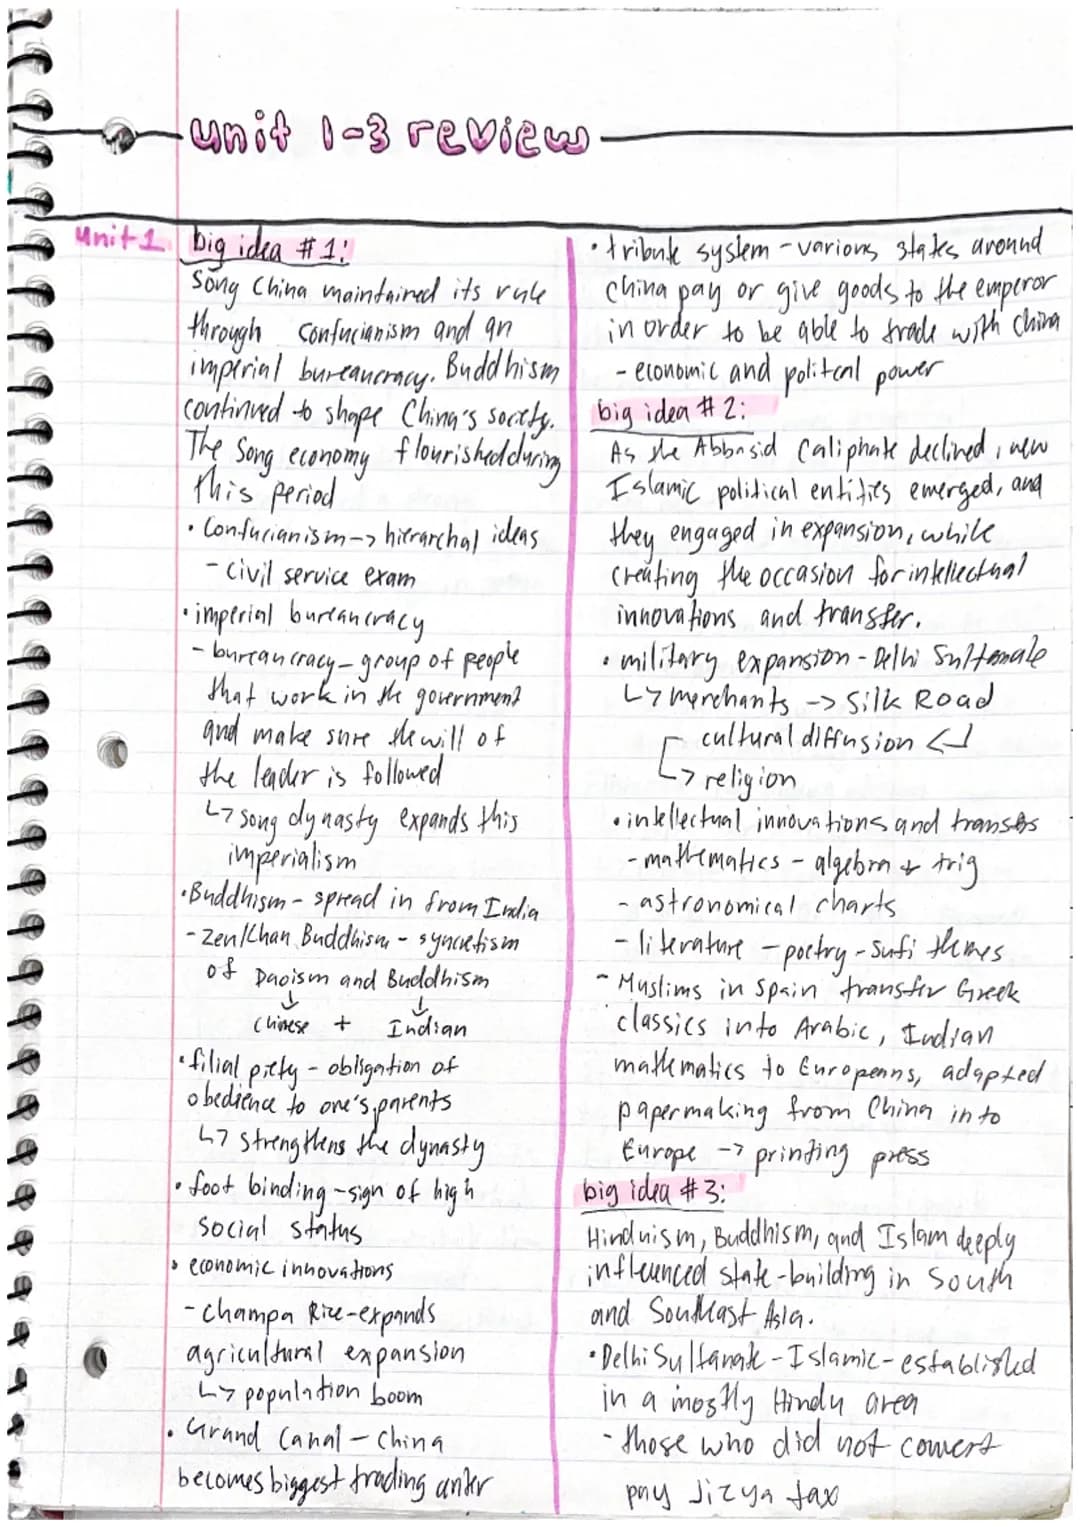 unit 1-3 review
unit 1
big idea #1:
Song China maintained its rule
through confucianism and an
imperial bureaucracy. Buddhism
continued to shape China's society.
The Song economy flourished during
this period
• Confucianism -> hierarchal ideas
- civil service exam
• imperial bureaucracy
- bureaucracy - group of people
that work in the government
and make sure the will of
the leader is followed
↳ song dynasty expands this
imperialism
• Buddhism - spread in from India
- Zen/Chan Buddhism - syncretism
of Daoism and Buddhism
↓ ↓
Chinese + Indian
• filial piety - obligation of
obedience to one's parents
↳ strengthens the dynasty
• foot binding - sign of high
social status
• economic innovations
- Champa Rice - expands
agricultural expansion
↳ population boom
• Grand Canal - China
becomes biggest trading center
• tribute system - various states around
China pay or give goods to the emperor
in order to be able to trade with China
- economic and politcal power
big idea #2:
As the Abbasid Caliphate declined, new
Islamic political entities emerged, and
they engaged in expansion, while
creating the occasion for intellectual
innovations and transfer.
• military expansion - Delhi Sultanate
↳ merchants -> Silk Road
cultural diffusion ↲
↳ religion
• intellectual innovations and transfers
- mathematics - algebra & trig
- astronomical charts
- literature - poetry - Sufi themes
- Muslims in Spain transfer Greek
classics into Arabic, Indian
mathematics to Europeans, adapted
papermaking from China into
Europe -> printing press
big idea #3:
Hinduism, Buddhism, and Islam deeply
influenced state-building in South
and Southeast Asia.
• Delhi Sultanate - Islamic - established
in a mostly Hindu area
- those who did not convert
pay Jizya tax